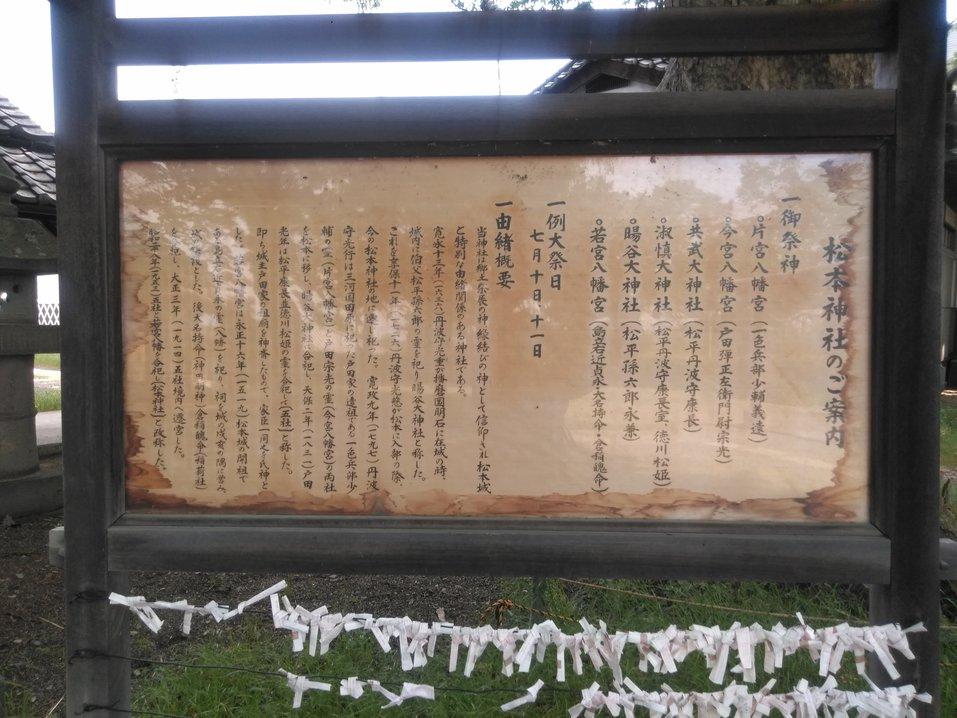 松本神社のご案内
一御祭神
◦片宮八幡宮(一色兵部少輔義遠)
◦今宮八幡宮(戸田弾正左衛門尉宗光)
◦共武大神社(松平丹波守康長)
◦淑慎大神社(松平丹波守康長室、徳川松姫)
◦暘谷大神社(松平孫六郎永兼)
◦若宮八幡宮(島立右近貞永大名持命・倉稲魂命)
一例大祭日
七月十日十一日
一由緒概要
当神社は郷土発展の神・縁結びの神として信仰され、松本城
と特別な由緒関係のある神社である。
寛永十三年(一六三六)丹波守光重が播磨国明石に在城の時、
城内に伯父松平孫六郎の霊を祀り暘谷大神社と称した。
これを享保十一年(一七二六)丹波守光慈が松本に入部の際、
今の松本神社の地に遷し祀した。寛政九年(一七九七)丹波
守光行は三河国田原に祀った戸田家の遠祖である一色兵部少
輔の霊(片宮八幡宮)、戸田宗光の霊(今宮八幡宮)の両社
を松本に移し、暘谷大神社に合祀し、天保二年(一八三一)戸田
光年が松平康長並徳川松姫の霊を合祀して(五社)と称した。
即ち城主戸田家の祖廟を神斎したもので、家臣一同も氏神と
した。若宮八幡宮は永正十六年(一五一九)松本城の開祖で
を祀し、大正三年(一九一四)五社境内へ遷宮した。
昭和二八年(一九五三)五社と若宮八幡を合祀し「松本神社」と改称した。